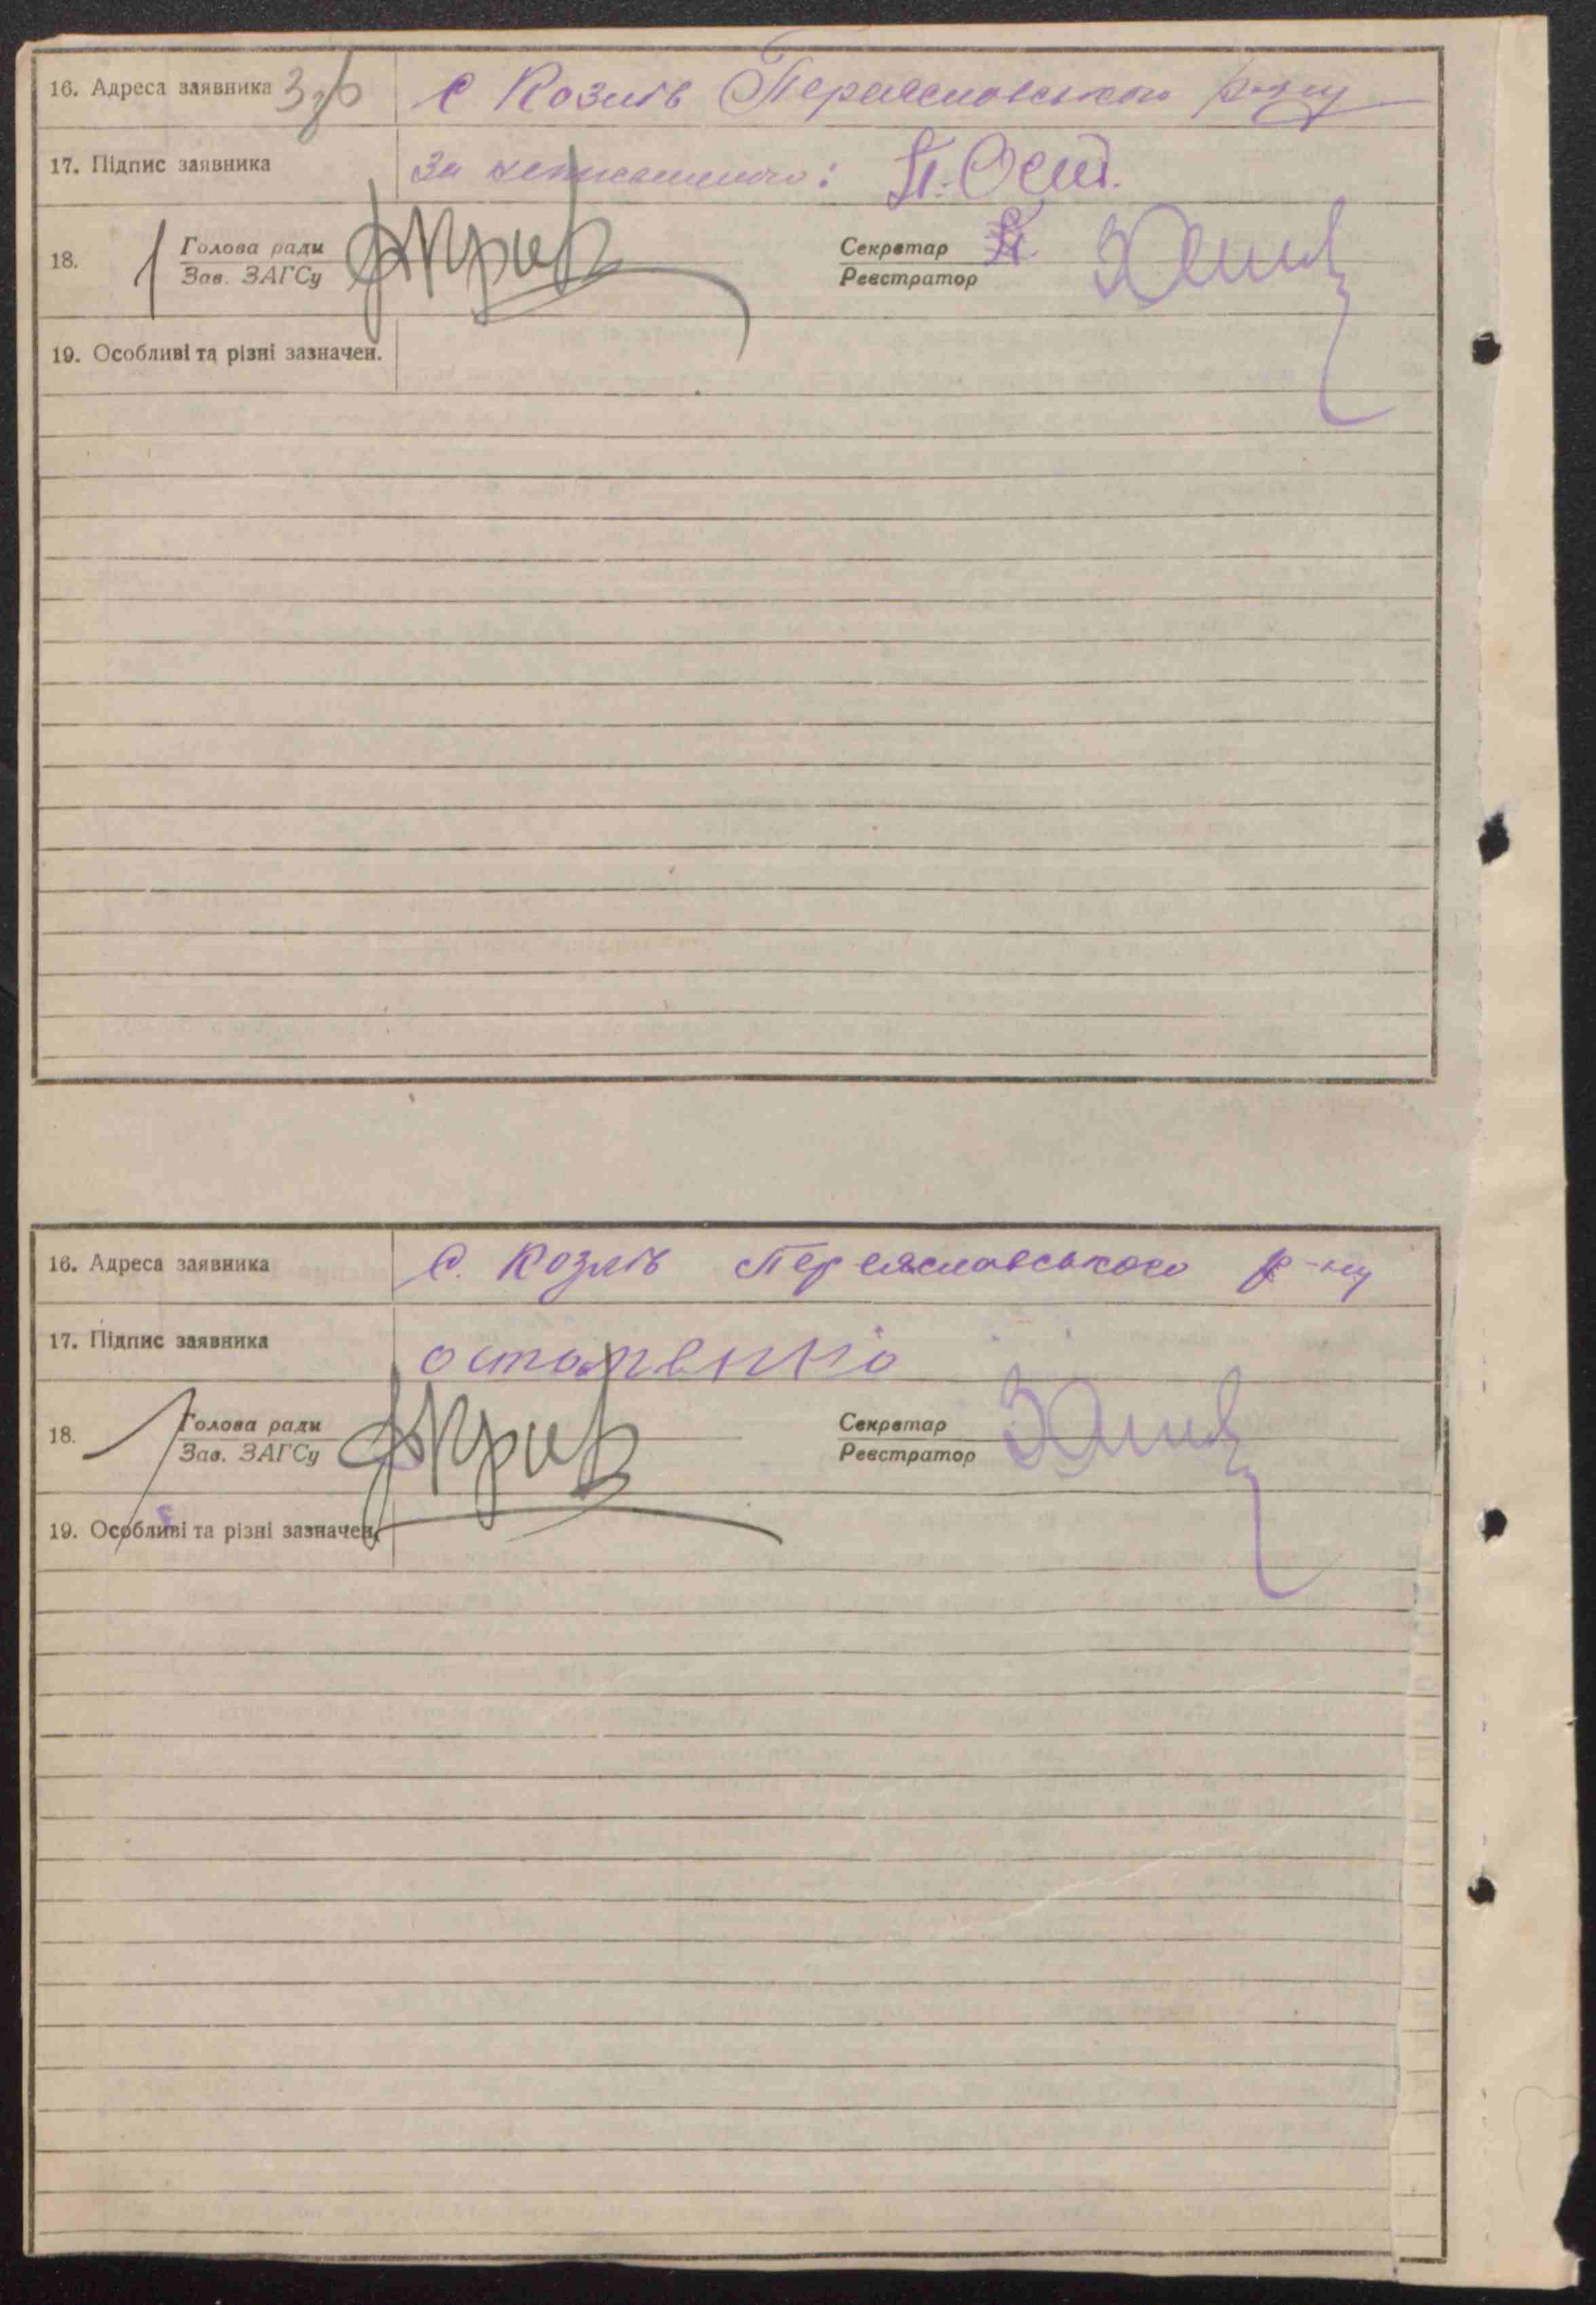 16. Адреса заявника с Козлів Переяславського р-ну
17. Підпис заявника За неписьменого: П. Осид.
18. Голова ради Секретар
Зав. ЗАГСу Реєстратор
19. Особливі та різні зазначен.
16. Адреса заявника С. Козлів Переяславського р-ну
17. Підпис заявника остапенко
18. Голова ради Секретар
Зав. ЗАГСу Реєстратор
19. Особливі та різні зазначен.